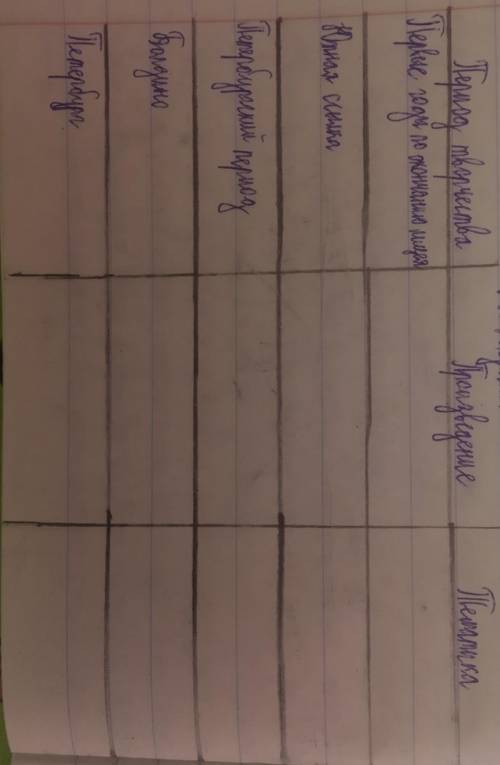 Период творчества Произведение Тематика
Первые годы по окончанию лицея
Южная ссылка
Петербургский период
Болдино
Петербург